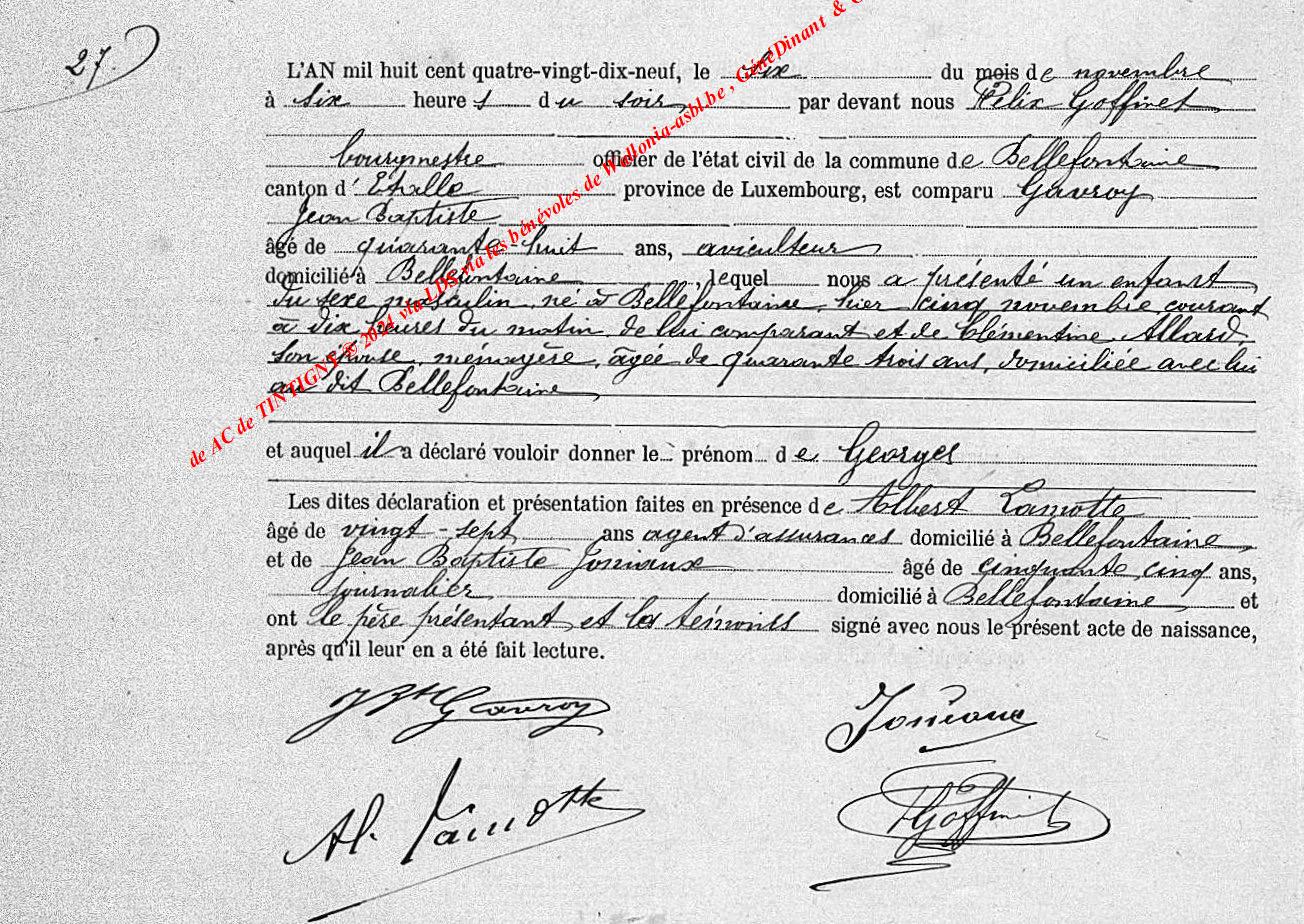 27.
L'AN mil huit cent quatre-vingt-dix-neuf, le six du mois de novembre
à six heures du soir, par devant nous Félix Goffinet
bourgmestre officier de l'état civil de la commune de Bellefontaine
canton d'Etalle province de Luxembourg, est comparu Gavroy
Jean Baptiste
âgé de quarante huit ans, aviculteur
domicilié à Bellefontaine, lequel nous a présenté un enfant
du sexe masculin, né à Bellefontaine, hier cinq novembre courant
à dix heures du matin, de lui comparant et de Clémentine Allard,
son épouse, ménagère, âgée de quarante trois ans, domiciliée avec lui
au dit Bellefontaine
et auquel il a déclaré vouloir donner le prénom de Georges
Les dites déclaration et présentation faites en présence de Albert Lamotte
âgé de vingt-sept ans agent d'assurances domicilié à Bellefontaine
et de Jean Baptiste Joniaux âgé de cinquante cinq ans,
journalier domicilié à Bellefontaine et
ont le père présentant et les témoins signé avec nous le présent acte de naissance,
après qu'il leur en a été fait lecture.
J Bte Gavroy
Joniaux
Al. Lamotte
F Goffinet
de AC de TINTIGNY © 2024 via LDS via les bénévoles de Wallonia-asbl.be , GénéDinant &